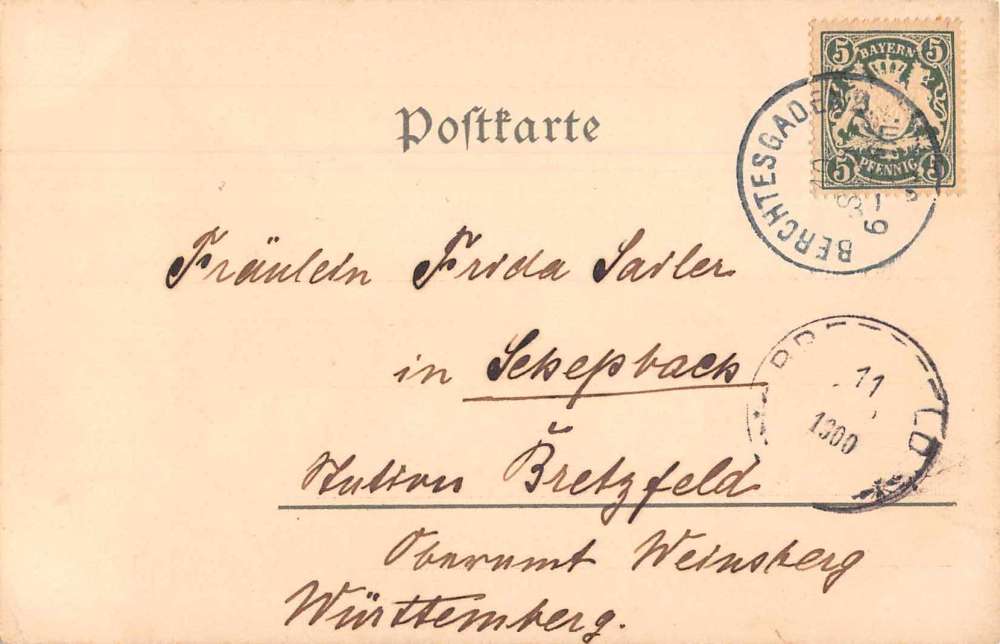 5 BAYERN 5
5 PFENNIG 5
BERCHTESGADEN
Postkarte
Fräulein Frida Sailer
in
11
1900
Station Bretzfeld
Oberamt Weinsberg
Württemberg.